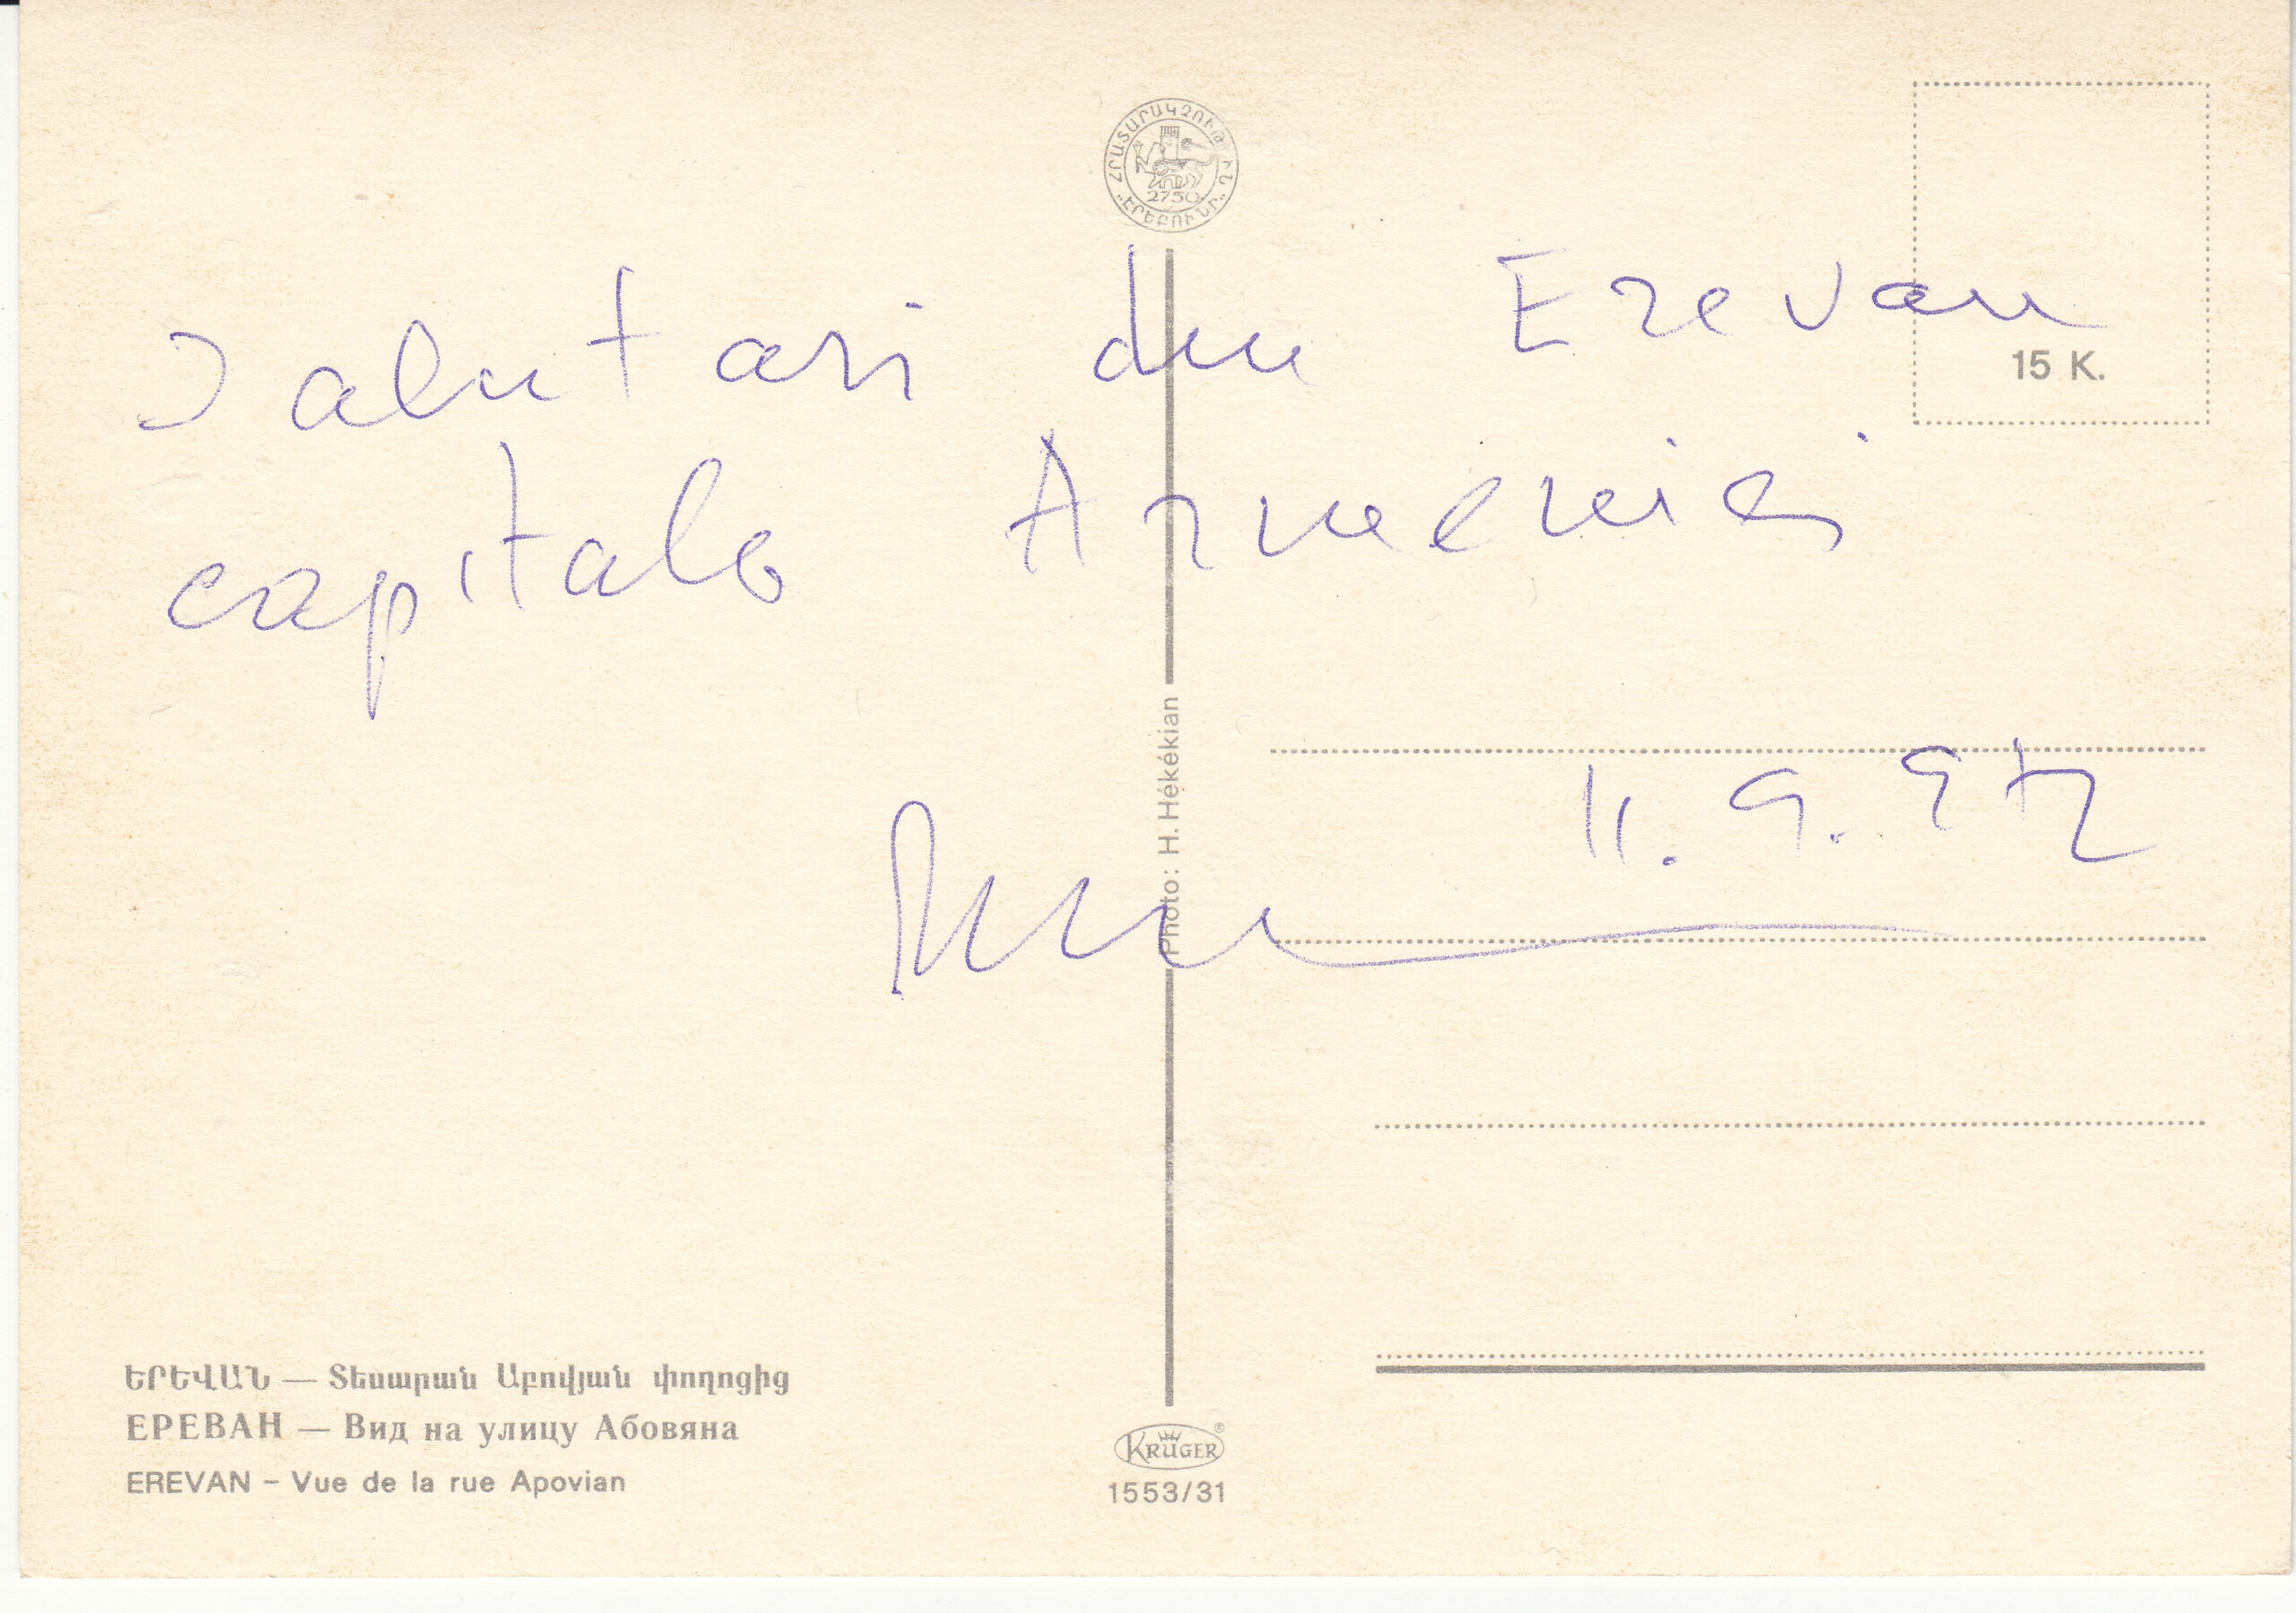 ՀՐԱՏԱՐԱԿՉՈՒԹ
„ԷՐԵԲՈՒՆԻ„
2750
15 K.
Salutari din Erevan
capitala Armeniei
11. 9. 972
Photo: H. Hékékian
ԵՐԵՎԱՆ — Տեսարան Աբովյան փողոցից
ЕРЕВАН — Вид на улицу Абовяна
EREVAN – Vue de la rue Apovian
KRÜGER®
1553/31